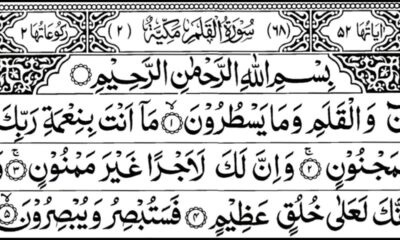 اٰیَاتُهَا ٥٢ (٦٨) سُوْرَةُ الْقَلَمِ مَكِّیَّةٌ (٢) رُكُوْعَاتُهَا ٢
بِسْمِ اللّٰهِ الرَّحْمٰنِ الرَّحِیْمِ
نٓ وَالْقَلَمِ وَمَا یَسْطُرُوْنَ ۙ﴿١﴾ مَاۤ اَنْتَ بِنِعْمَةِ رَبِّكَ
بِمَجْنُوْنٍ ۚ﴿٢﴾ وَاِنَّ لَكَ لَاَجْرًا غَیْرَ مَمْنُوْنٍ ۚ﴿٣﴾
لَعَلٰی خُلُقٍ عَظِیْمٍ ﴿٤﴾ فَسَتُبْصِرُ وَیُبْصِرُوْنَ ۙ﴿٥﴾